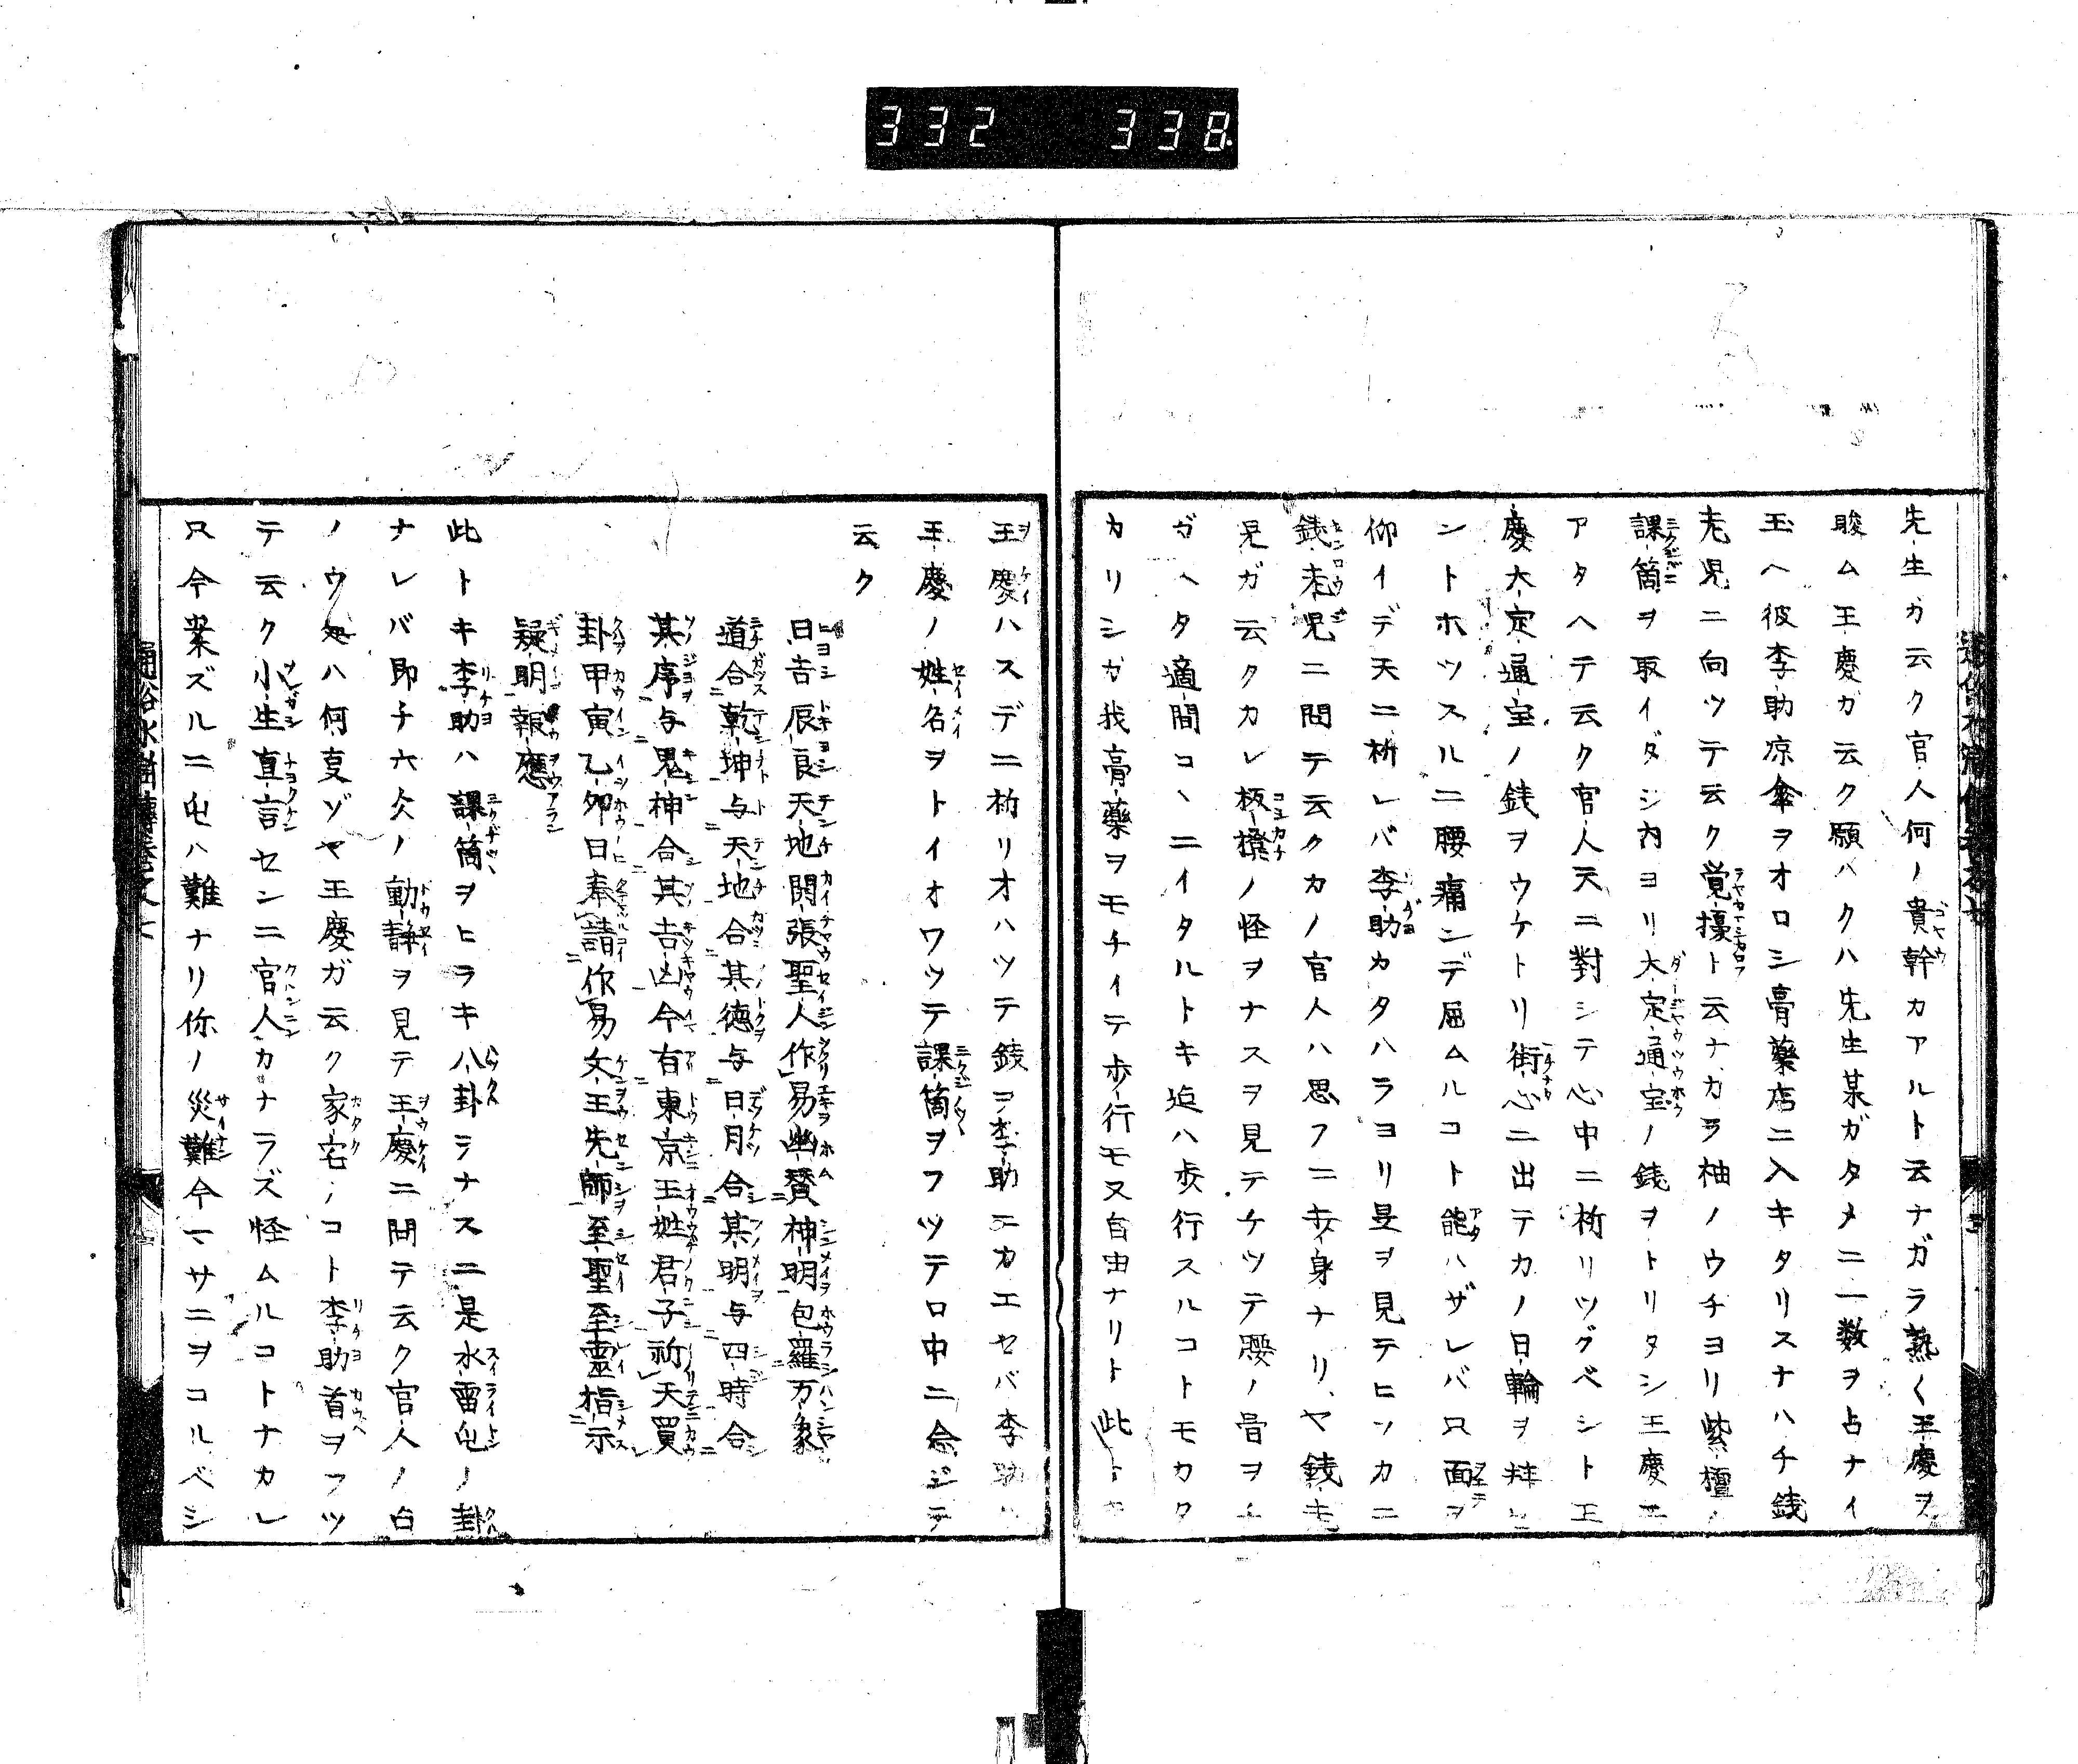 332 338
先生カ云ク官人何ノ貴幹カアルト云ナガラ熟く王慶ヲ
睃ム王慶ガ云ク願ハクハ先生某ガタメニ一数ヲ占ナイ
玉ヘ彼李助凉傘ヲオロシ膏藥店ニ入キタリスナハチ銭
老児ニ向ツテ云ク覚擾ト云ナカラ袖ノウチヨリ紫檀ノ
課筒ヲ取イダシ内ヨリ大定通宝ノ銭ヲトリタシ王慶ニ
アタヘテ云ク官人天ニ對シテ心中ニ祈リツグベシト王
慶大定通宝ノ銭ヲウケトリ街心ニ出テカノ日輪ヲ拜セ
ントホツスルニ腰痛ンデ屈ムルコト能ハザレバ只面ヲ
仰イデ天ニ祈レバ李助カタハラヨリ是ヲ見テヒソカニ
銭老児ニ問テ云クカノ官人ハ思フニ歩身ナリヤ銭老
児ガ云クカレ板凳ノ怪ヲナスヲ見テケツテ腰ノ骨ヲチ
ガヘタ適間コヽニイタルトキ迄ハ歩行スルコトモカタ
カリシガ我膏藥ヲモチイテ歩行モ又自由ナリト此トキ
王慶ハスデニ祈リオハツテ銭ヲ李助ニカエセバ李助ハ
王慶ノ姓名ヲトイオワツテ課筒ヲフツテ口中ニ念ジテ
云ク
日吉辰良天地開張聖人作易幽賛神明包羅万象
道合乾坤与天地合其徳与日月合其明与四時合
其序与鬼神合其吉凶今有東京王姓君子祈天買
卦甲寅乙卯日奉請作易文王先師至聖至靈指示
疑明報應
此トキ李助ハ課筒ヲヒラキ八卦ヲナスニ是水雷屯ノ卦
ナレバ即チ六爻ノ動静ヲ見テ王慶ニ問テ云ク官人ノ占
ノウ処ハ何叓ゾヤ王慶ガ云ク家宅ノコト李助首ヲフツ
テ云ク小生直言センニ官人カナラズ怪ムルコトナカレ
只今案ズルニ屯ハ難ナリ你ノ災難今一サニヲコルベシ